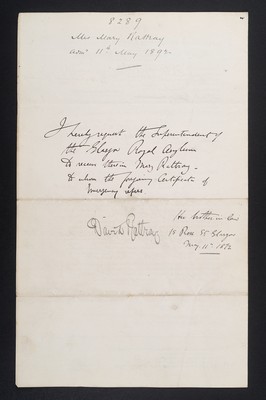 8289
Mrs Mary Rattray
Adm. 11th May 1892
I hereby request the Superintendent of
the Glasgow Royal Asylum
to receive therein Mary Rattray
to whom the foregoing Certificate of
Emergency refers
David Rattray
Her brother in law
18 Rose St Glasgow
May 11th 1892